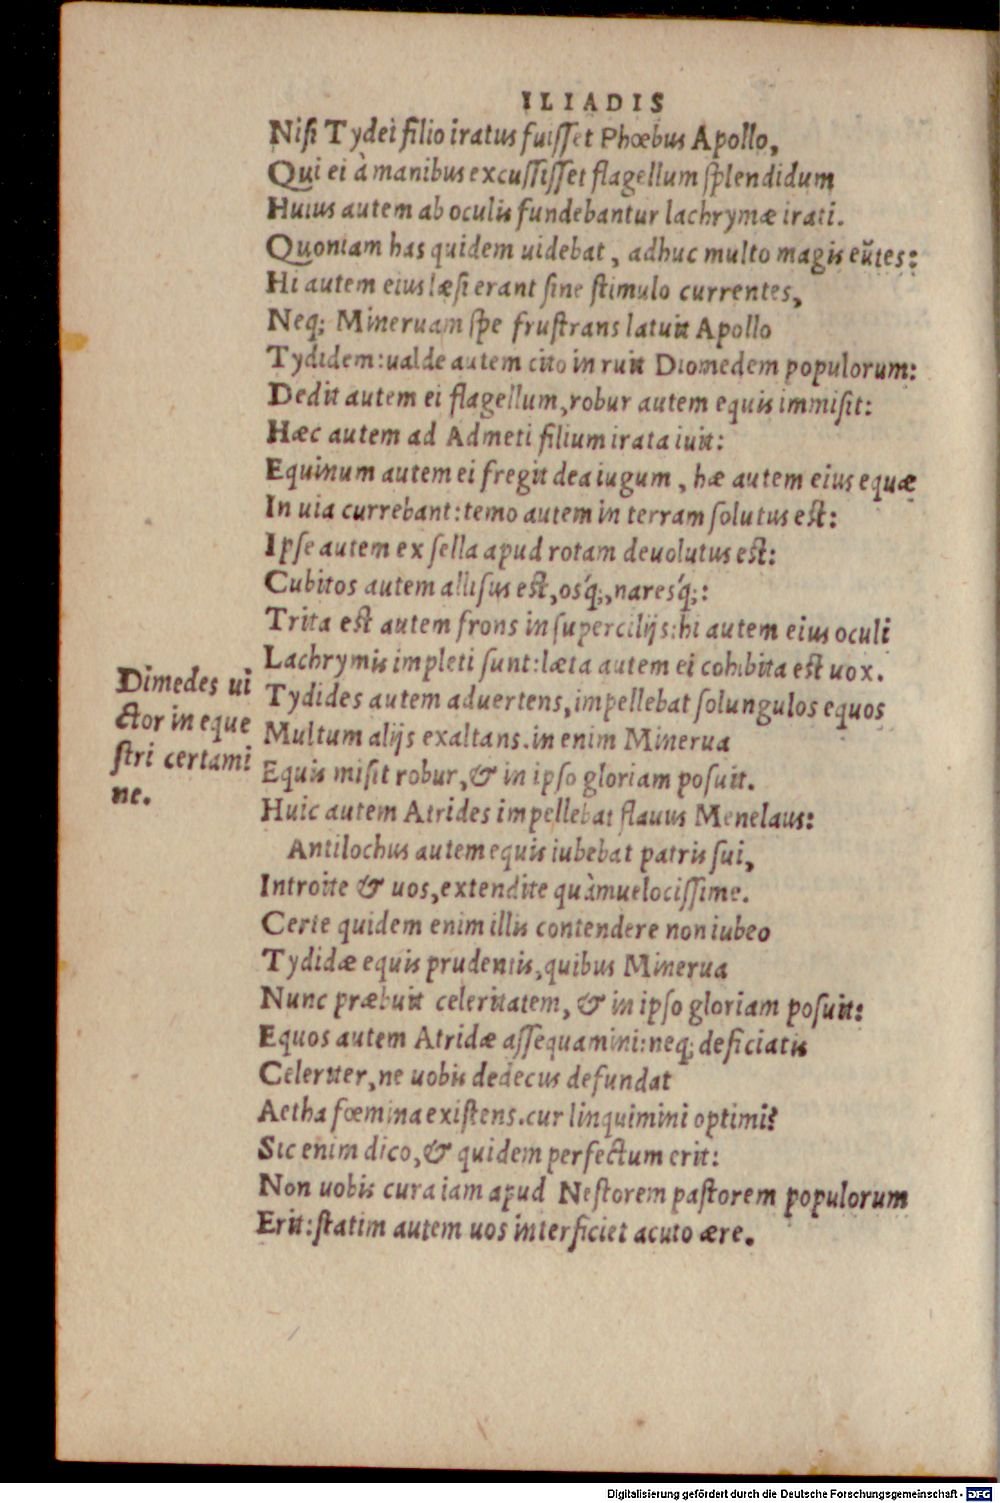 ILIADIS
Nisi Tydei filio iratus fuisset Phœbus Apollo,
Qui ei à manibus excussisset flagellum splendidum
Huius autem ab oculis fundebantur lachrymæ irati.
Quoniam has quidem uidebat, adhuc multo magis eũtes:
Hi autem eius læsi erant sine stimulo currentes,
Neq; Mineruam spe frustrans latuit Apollo
Tydidem: ualde autem cito in ruit Diomedem populorum:
Dedit autem ei flagellum, robur autem equis immisit:
Hæc autem ad Admeti filium irata iuit:
Equinum autem ei fregit dea iugum, hæ autem eius equæ
In uia currebant: temo autem in terram solutus est:
Ipse autem ex sella apud rotam deuolutus est:
Cubitos autem allisus est, osq́;, naresq́;:
Trita est autem frons in supercilijs: hi autem eius oculi
Lachrymis impleti sunt: læta autem ei cohibita est uox.
Tydides autem aduertens, impellebat solungulos equos
Multum alijs exaltans. in enim Minerua
Equis misit robur, & in ipso gloriam posuit.
Huic autem Atrides impellebat flauus Menelaus:
Antilochus autem equis iubebat patris sui,
Introite & uos, extendite quàm uelocissime.
Certe quidem enim illis contendere non iubeo
Tydidæ equis prudentis, quibus Minerua
Nunc præbuit celeritatem, & in ipso gloriam posuit:
Equos autem Atridæ assequamini: neq; deficiatis
Celeriter, ne uobis dedecus defundat
Aetha fœmina existens. cur linquimini optimi?
Sic enim dico, & quidem perfectum erit:
Non uobis cura iam apud Nestorem pastorem populorum
Erit: statim autem uos interficiet acuto ære.
Dimedes ui
ctor in eque
stri certami
ne.
Digitalisierung gefördert durch die Deutsche Forschungsgemeinschaft - DFG